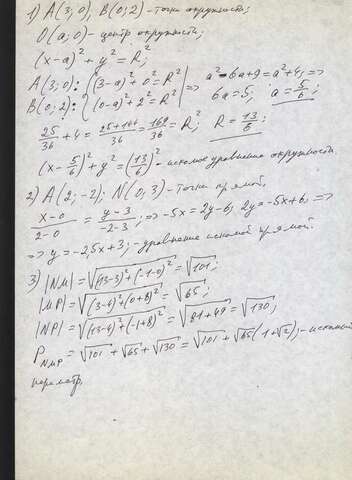 1) A(3;0); B(0;2) - точки окружности;
O(a;0) - центр окружности;
(x-a)² + y² = R²;
A(3;0): { (3-a)² + 0² = R² | => a² - 6a + 9 = a² + 4; =>
B(0;2): { (0-a)² + 2² = R² | 6a = 5; a = 5/6;
25/36 + 4 = (25+144)/36 = 169/36 = R²; R = 13/6;
(x - 5/6)² + y² = (13/6)² - искомое уравнение окружности.
2) A(2;-2); N(0;3) - точки прямой;
(x-0)/(2-0) = (y-3)/(-2-3); => -5x = 2y-6; 2y = -5x+6; =>
=> y = -2,5x+3; - уравнение искомой прямой.
3) |NM| = √((13-3)² + (-1-0)²) = √101;
|MP| = √((3-4)² + (0+8)²) = √65;
|NP| = √((13-4)² + (-1+8)²) = √(81+49) = √130;
P_NMP = √101 + √65 + √130 = √101 + √65(1+√2); - искомый
периметр.